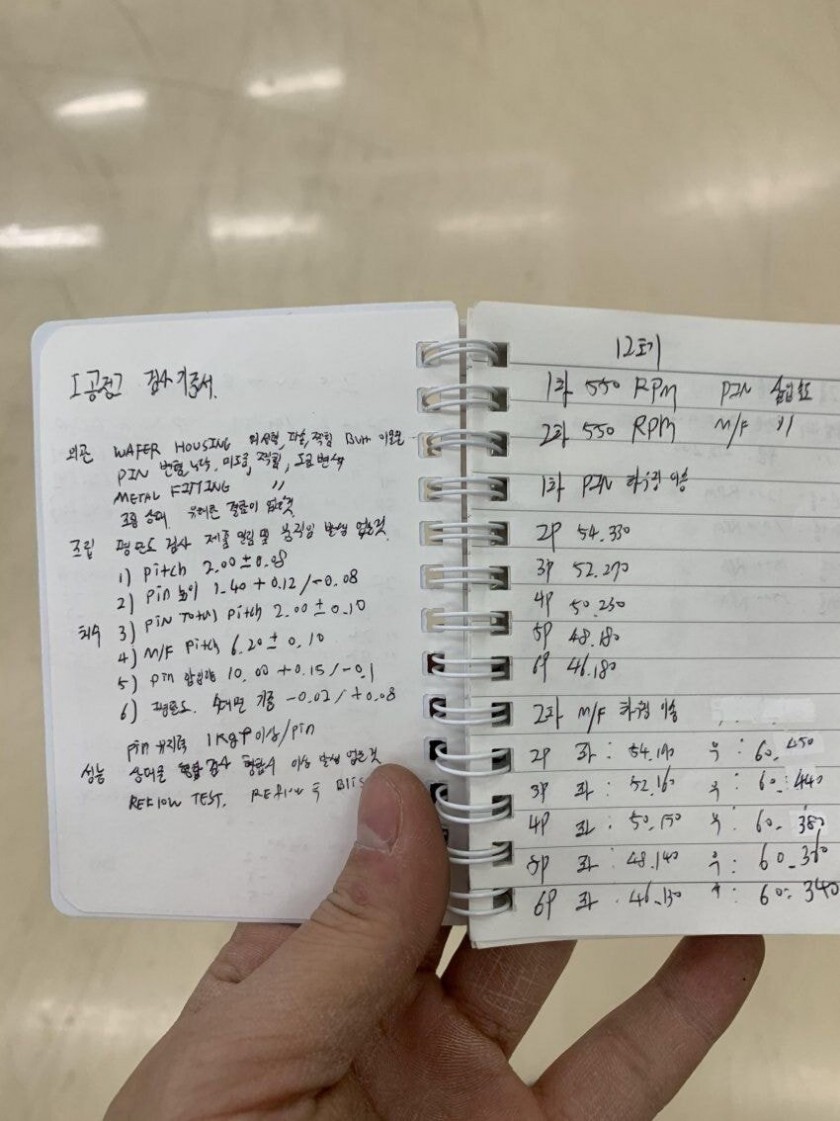 I 공정 검사기준서.
외관 WAFER HOUSING 미성형, 파손, 찍힘 Burr 이물
PIN 변형, 누락, 미도금, 찍힘, 도금변색
METAL FITTING "
조립 상태 유해한 결함이 없을것
조립 평탄도 검사 제품 밀림 및 움직임 발생 없을것
1) Pitch 2.00 ± 0.08
2) pin 높이 1.40 + 0.12 / -0.08
치수 3) PIN Total pitch 2.00 ± 0.10
4) M/F pitch 6.20 ± 0.10
5) pin 압입량 10.00 +0.15 / -0.1
6) 평탄도. 기준 -0.02 / +0.08
pin 유지력 1Kgf 이상/pin
성능 상대물 이상 발생 없을것
REFLOW TEST. Reflow 후
12호기
1차 550 RPM PIN 삽입검토
2차 550 RPM M/F "
1차 PIN 하우징 이송
2P 54.330
3P 52.270
4P 50.230
5P 48.180
6P 46.180
2차 M/F 하우징 이송
2P 좌 : 54.190 우 : 60.450
3P 좌 : 52.160 우 : 60.440
4P 좌 : 50.150 우 : 60.380
5P 좌 : 48.140 우 : 60.360
6P 좌 : 46.130 우 : 60.340